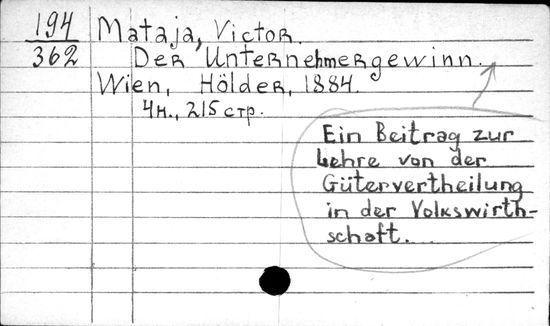 194 Mataja, Victor.
362 Der Unternehmergewinn.
Wien, Hölder, 1884.
4н., 215 стр.
Ein Beitrag zur
Lehre von der
Gütervertheilung
in der Volkswirth-
schaft...